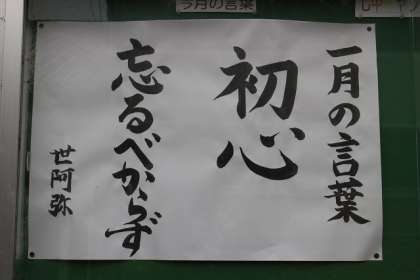 今月の言葉
一月の言葉
初心
忘るべからず
世阿弥